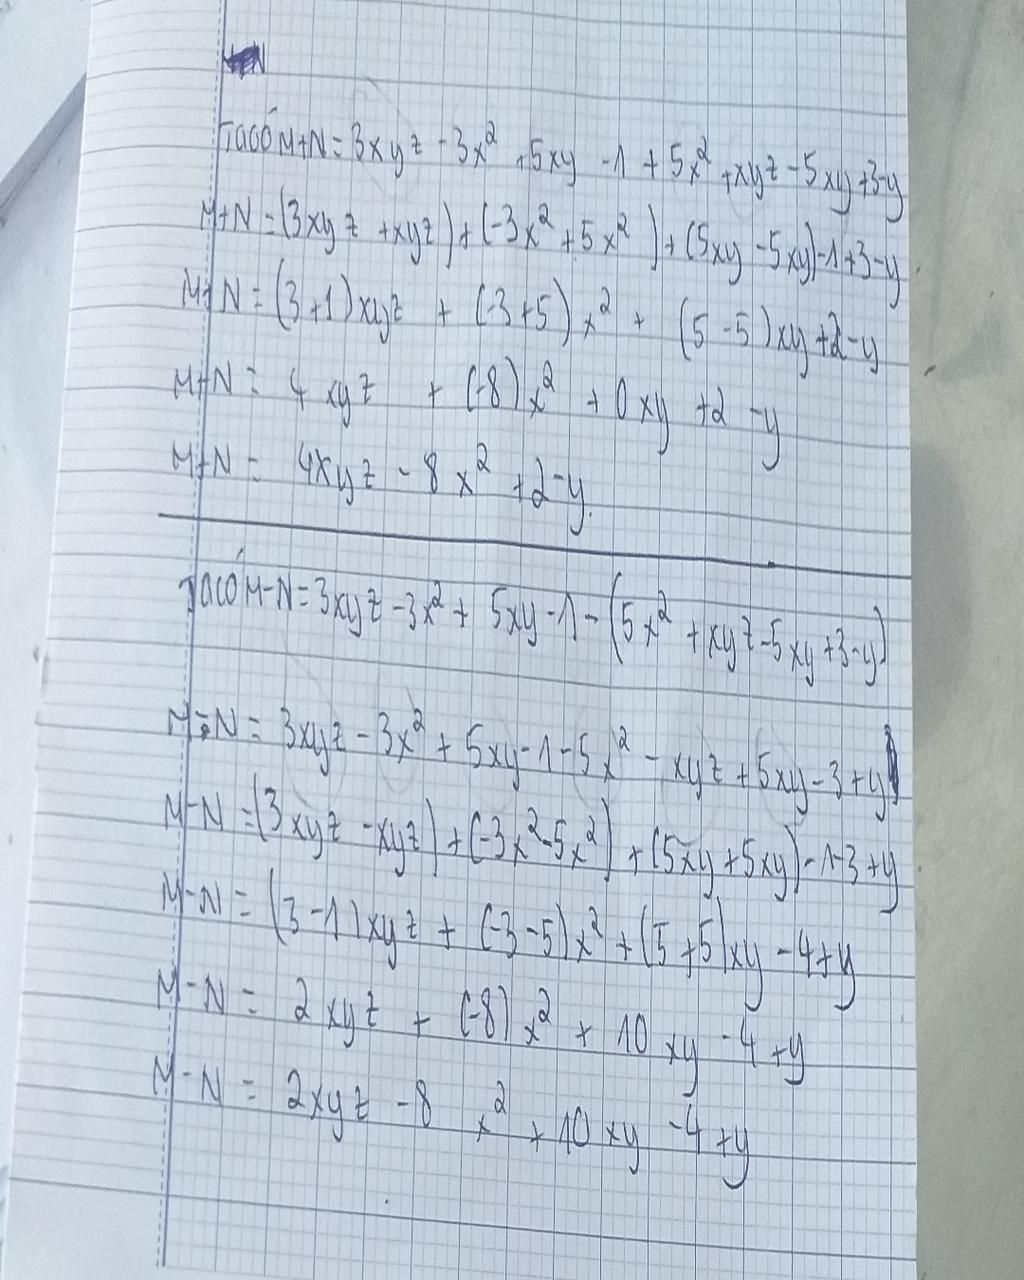 Ta có M+N = 3xyz - 3x² + 5xy - 1 + 5x² + xyz - 5xy + 3 - y
M+N = (3xyz + xyz) + (-3x² + 5x²) + (5xy - 5xy) - 1 + 3 - y
M+N = (3+1)xyz + (-3+5)x² + (5-5)xy + 2 - y
M+N = 4xyz + (-8)x² + 0xy + 2 - y
M+N = 4xyz - 8x² + 2 - y.
Ta có M-N = 3xyz - 3x² + 5xy - 1 - (5x² + xyz - 5xy + 3 - y)
M-N = 3xyz - 3x² + 5xy - 1 - 5x² - xyz + 5xy - 3 + y
M-N = (3xyz - xyz) + (-3x² - 5x²) + (5xy + 5xy) - 1 - 3 + y
M-N = (3-1)xyz + (-3-5)x² + (5+5)xy - 4 + y
M-N = 2xyz + (-8)x² + 10xy - 4 + y
M-N = 2xyz - 8x² + 10xy - 4 + y